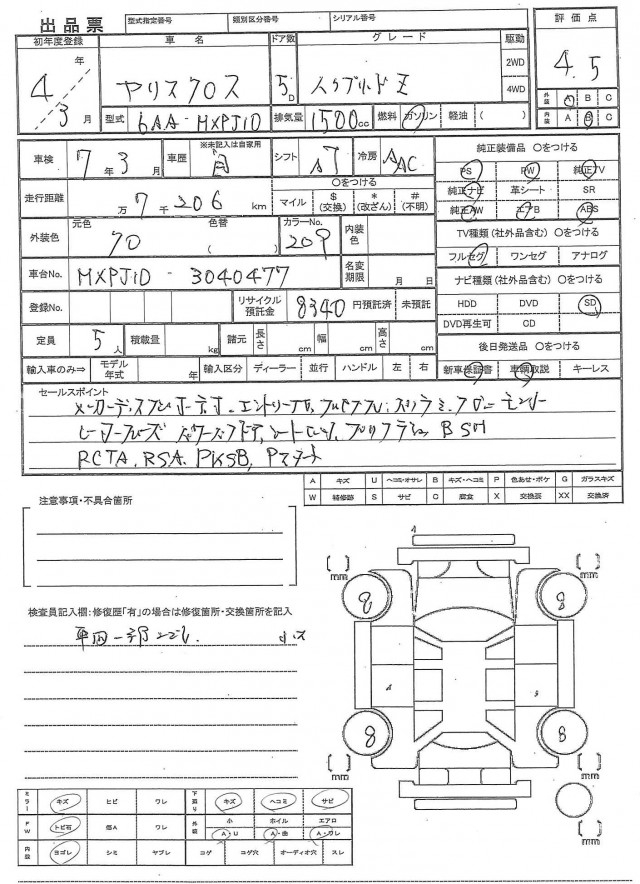 出品票
型式指定番号
類別区分番号
シリアル番号
評価点
4.5
初年度登録
車名
ドア数
グレード
駆動
4年
3月
ヤリスクロス
5D
ハイブリッドZ
2WD
4WD
外装 A B C
内装 A B C
型式
6AA-MXPJ10
排気量
1500cc
燃料
ガソリン
軽油
( )
車検
7年3月
車歴
※未記入は自家用
自
シフト
AT
冷房
AAC
純正装備品 〇をつける
PS
PW
純正TV
純正ナビ
革シート
SR
純正AW
エアB
ABS
走行距離
万7千206km
〇をつける
マイル
$ (交換)
* (改ざん)
# (不明)
外装色
元色
色替
70
( )
カラーNo.
209
内装色
TV種類(社外品含む)〇をつける
フルセグ
ワンセグ
アナログ
車台No.
MXPJ10 - 3040477
名変期限
月 日
ナビ種類(社外品含む)〇をつける
HDD
DVD
SD
DVD再生可
CD
登録No.
リサイクル預託金
8340円預託済
未預託
定員
5人
積載量
kg
諸元
長さ cm
幅 cm
高さ cm
後日発送品 〇をつける
新車保証書
車輌取説
キーレス
輸入車のみ⇒
モデル年式
年
輸入区分
ディーラー
並行
ハンドル
左
右
セールスポイント
RCTA, RSA, PKSB, Pスタート
A キズ U ヘコミ・オサレ B キズ・ヘコミ P 色あせ・ボケ G ガラスキズ
W 補修跡 S サビ C 腐食 X 交換要 XX 交換済
注意事項・不具合箇所
検査員記入欄:修復歴「有」の場合は修復箇所・交換箇所を記入
[ ]mm
[ ]mm
8
8
8
8
[ ]mm
[ ]mm
ミラー
キズ
ヒビ
ワレ
下廻り
キズ
ヘコミ
サビ
FW
トビ石
傷A
ワレ
外装
小
A・U
ホイル
A・曲
エアロ
A・ワレ
内装
ヨゴレ
シミ
ヤブレ
コゲ
コゲ穴
オーディオ穴
スレ